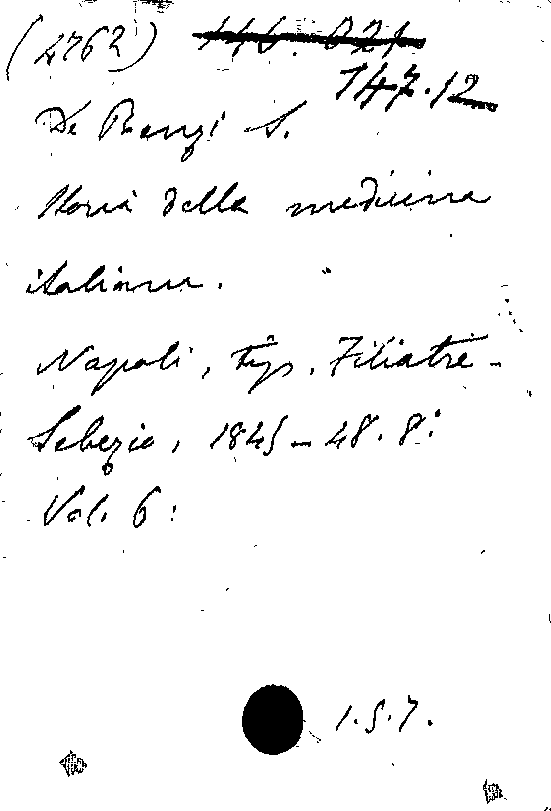 (4762) 146.821
147.12
De Renzi S.
Storia della medicina
italiana.
Napoli, tip. Filiatre-
Sebezio, 1845-48. 8°.
Vol. 6:
1.5.7.